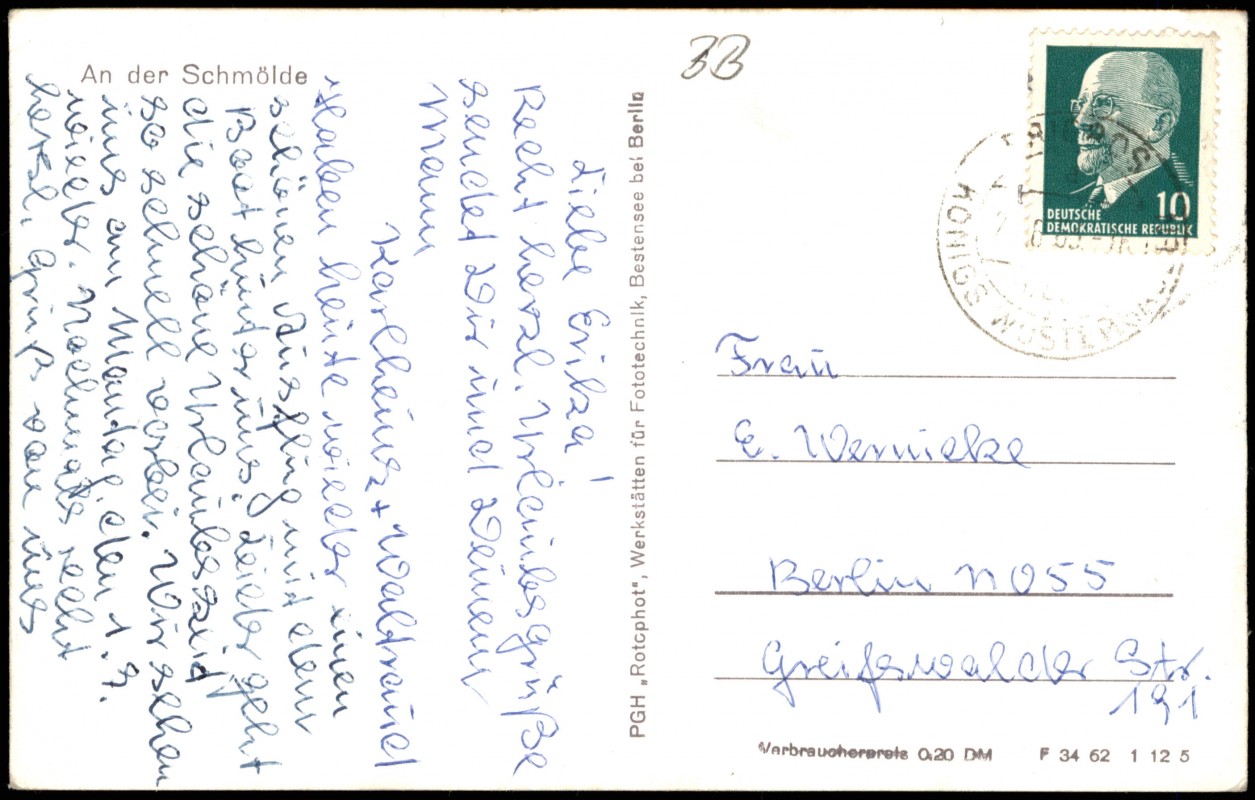 An der Schmölde
Liebe Erika!
Recht herzl. Urlaubsgrüße
sendet Dir und Deinem
Mann
Karlheinz + Waltraud
Haben heute wieder einen
schönen Ausflug mit dem
Boot hinter uns. Leider geht
die schöne Urlaubszeit
so schnell vorbei. Wir sehen
uns am Mondag, den 1.7.
wieder. Nochmals recht
herzl. Grüße von uns
PGH „Rotophot“, Werkstätten für Fototechnik, Bestensee bei Berlin
3B
10
DEUTSCHE
DEMOKRATISCHE REPUBLIK
KÖNIGS WUSTERHAUSEN
Frau
E. Wernicke
Berlin NO55
Greifswalder Str.
191
Verbraucherpreis 0.20 DM F 34 62 1 12 5